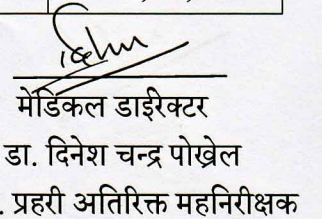 मेडिकल डाईरेक्टर
डा. दिनेश चन्द्र पोख्रेल
. प्रहरी अतिरिक्त महनिरीक्षक